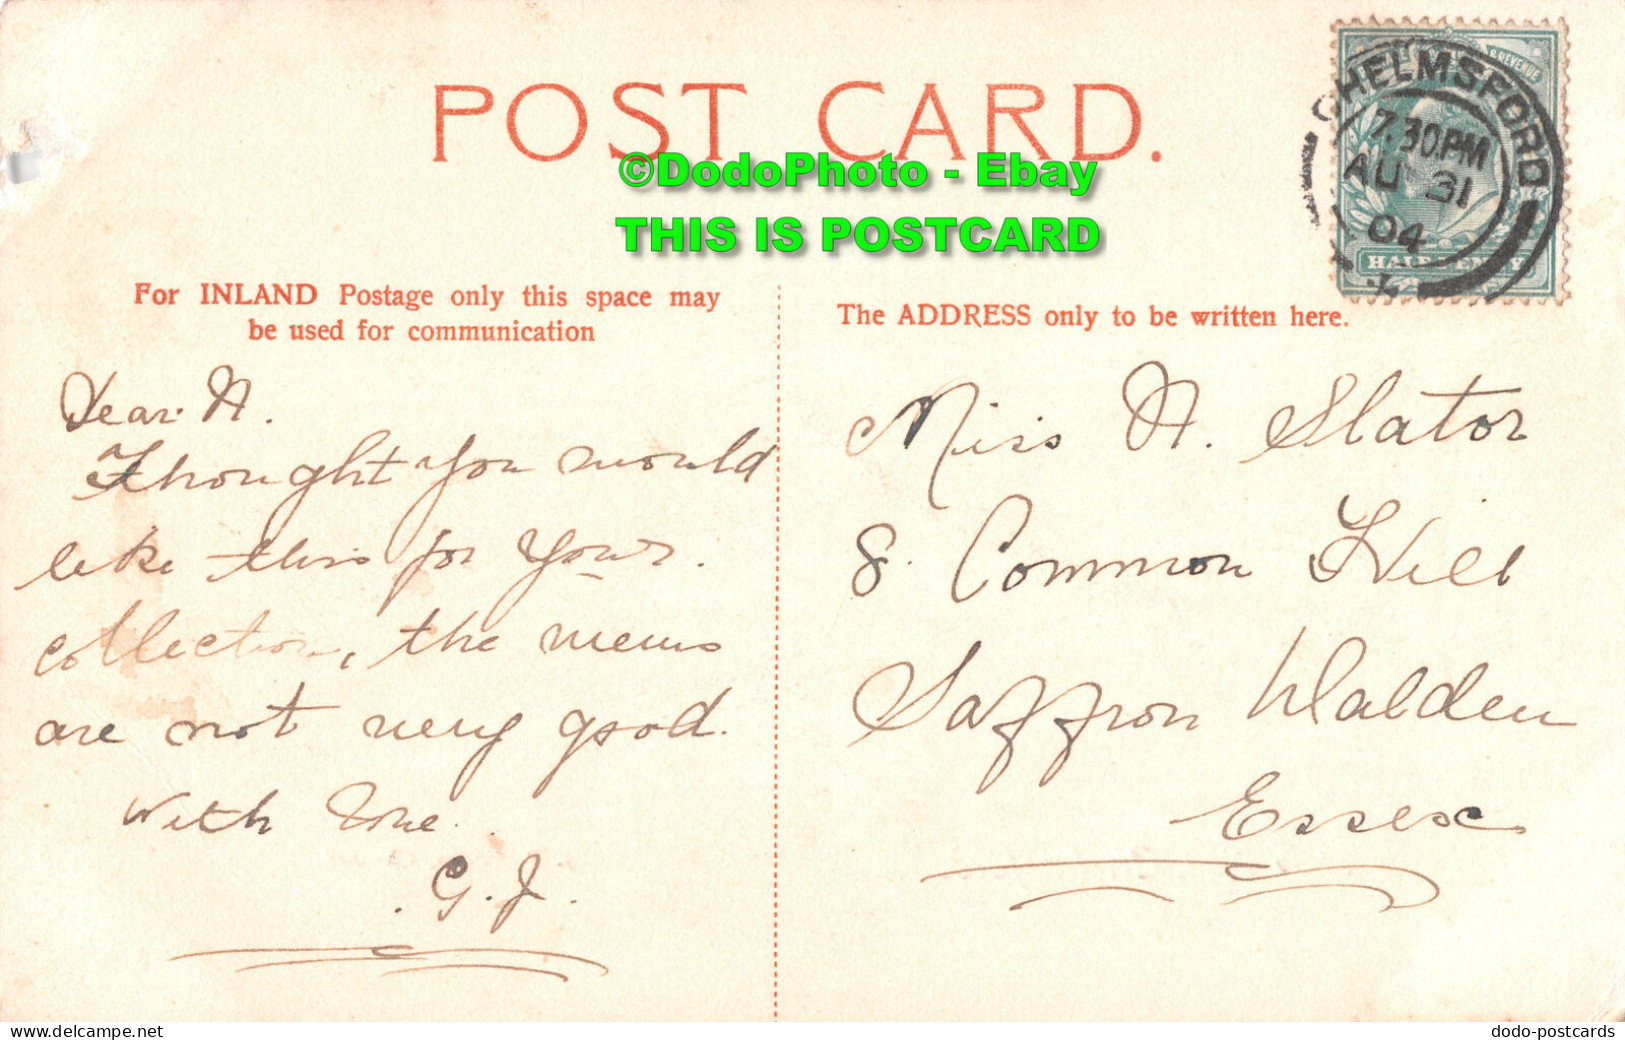 POST CARD.
©DodoPhoto - Ebay
THIS IS POSTCARD
CHELMSFORD
7.30PM
AU 31
04
REVENUE
HALFPENNY
For INLAND Postage only this space may
be used for communication
The ADDRESS only to be written here.
Dear N.
Thought you would
like this for your
collection, the views
are not very good.
With love.
G.J.
Miss N. Slator
8. Common Hill
Saffron Walden
Essex
www.delcampe.net
dodo-postcards